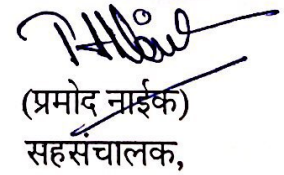 (प्रमोद नाईक)
सहसंचालक,